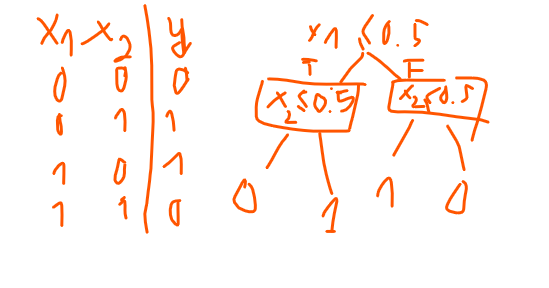 x1 x2 y
0 0 0
0 1 1
1 0 1
1 1 0
x1 ≤ 0.5
T F
x2 ≤ 0.5 x2 ≤ 0.5
0 1 1 0